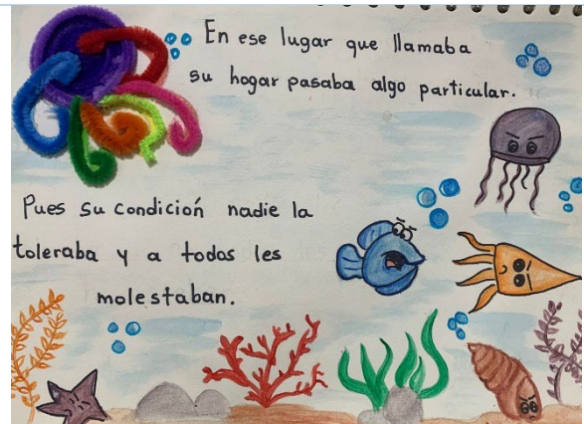 En ese lugar que llamaba
su hogar pasaba algo particular.
Pues su condición nadie la
toleraba y a todos les
molestaban.